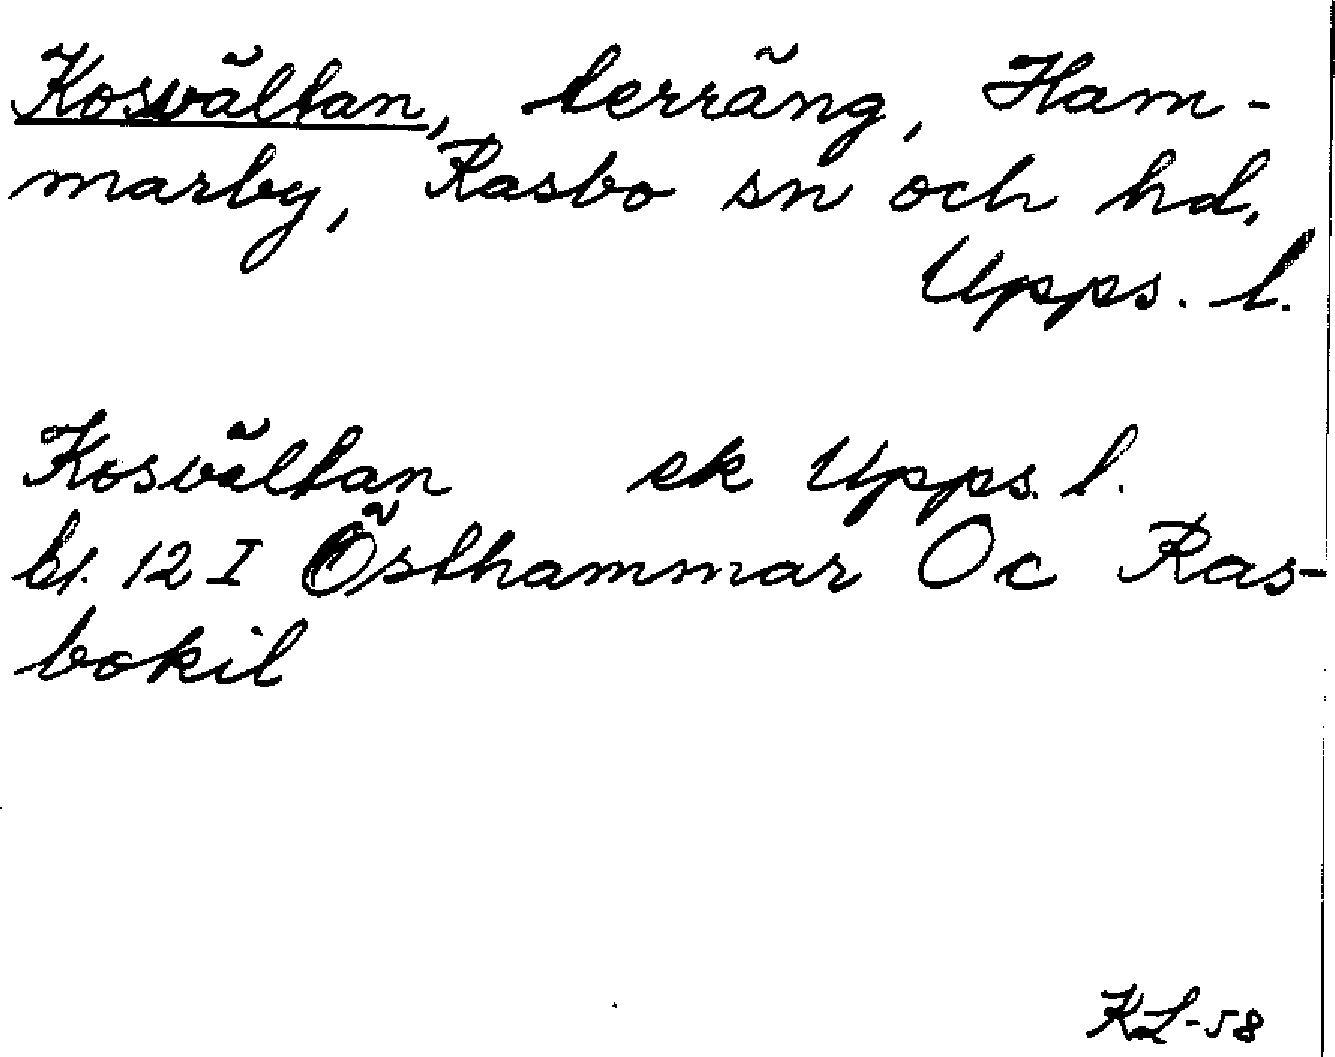 Kosvältan, terräng, Ham-
marby, Rasbo sn och hd,
Upps. l.
Kosvältan ek Upps. l.
bl. 12 I Östhammar Oc Ras-
bokil
KL-58